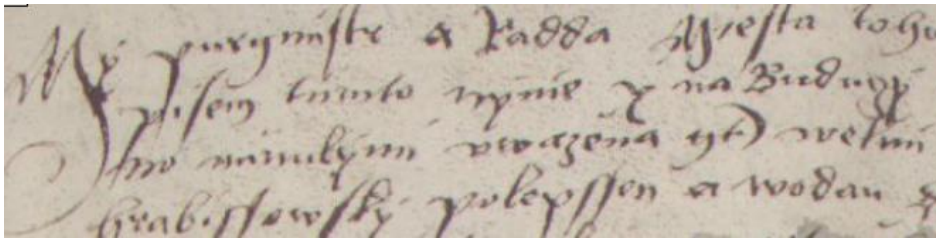 My purgmistr a Radda Miesta toho
pisem tiimto nynie y na Buduczy
two minulymi uwazena gt welmi
hrabissowsky polepssen a wodau